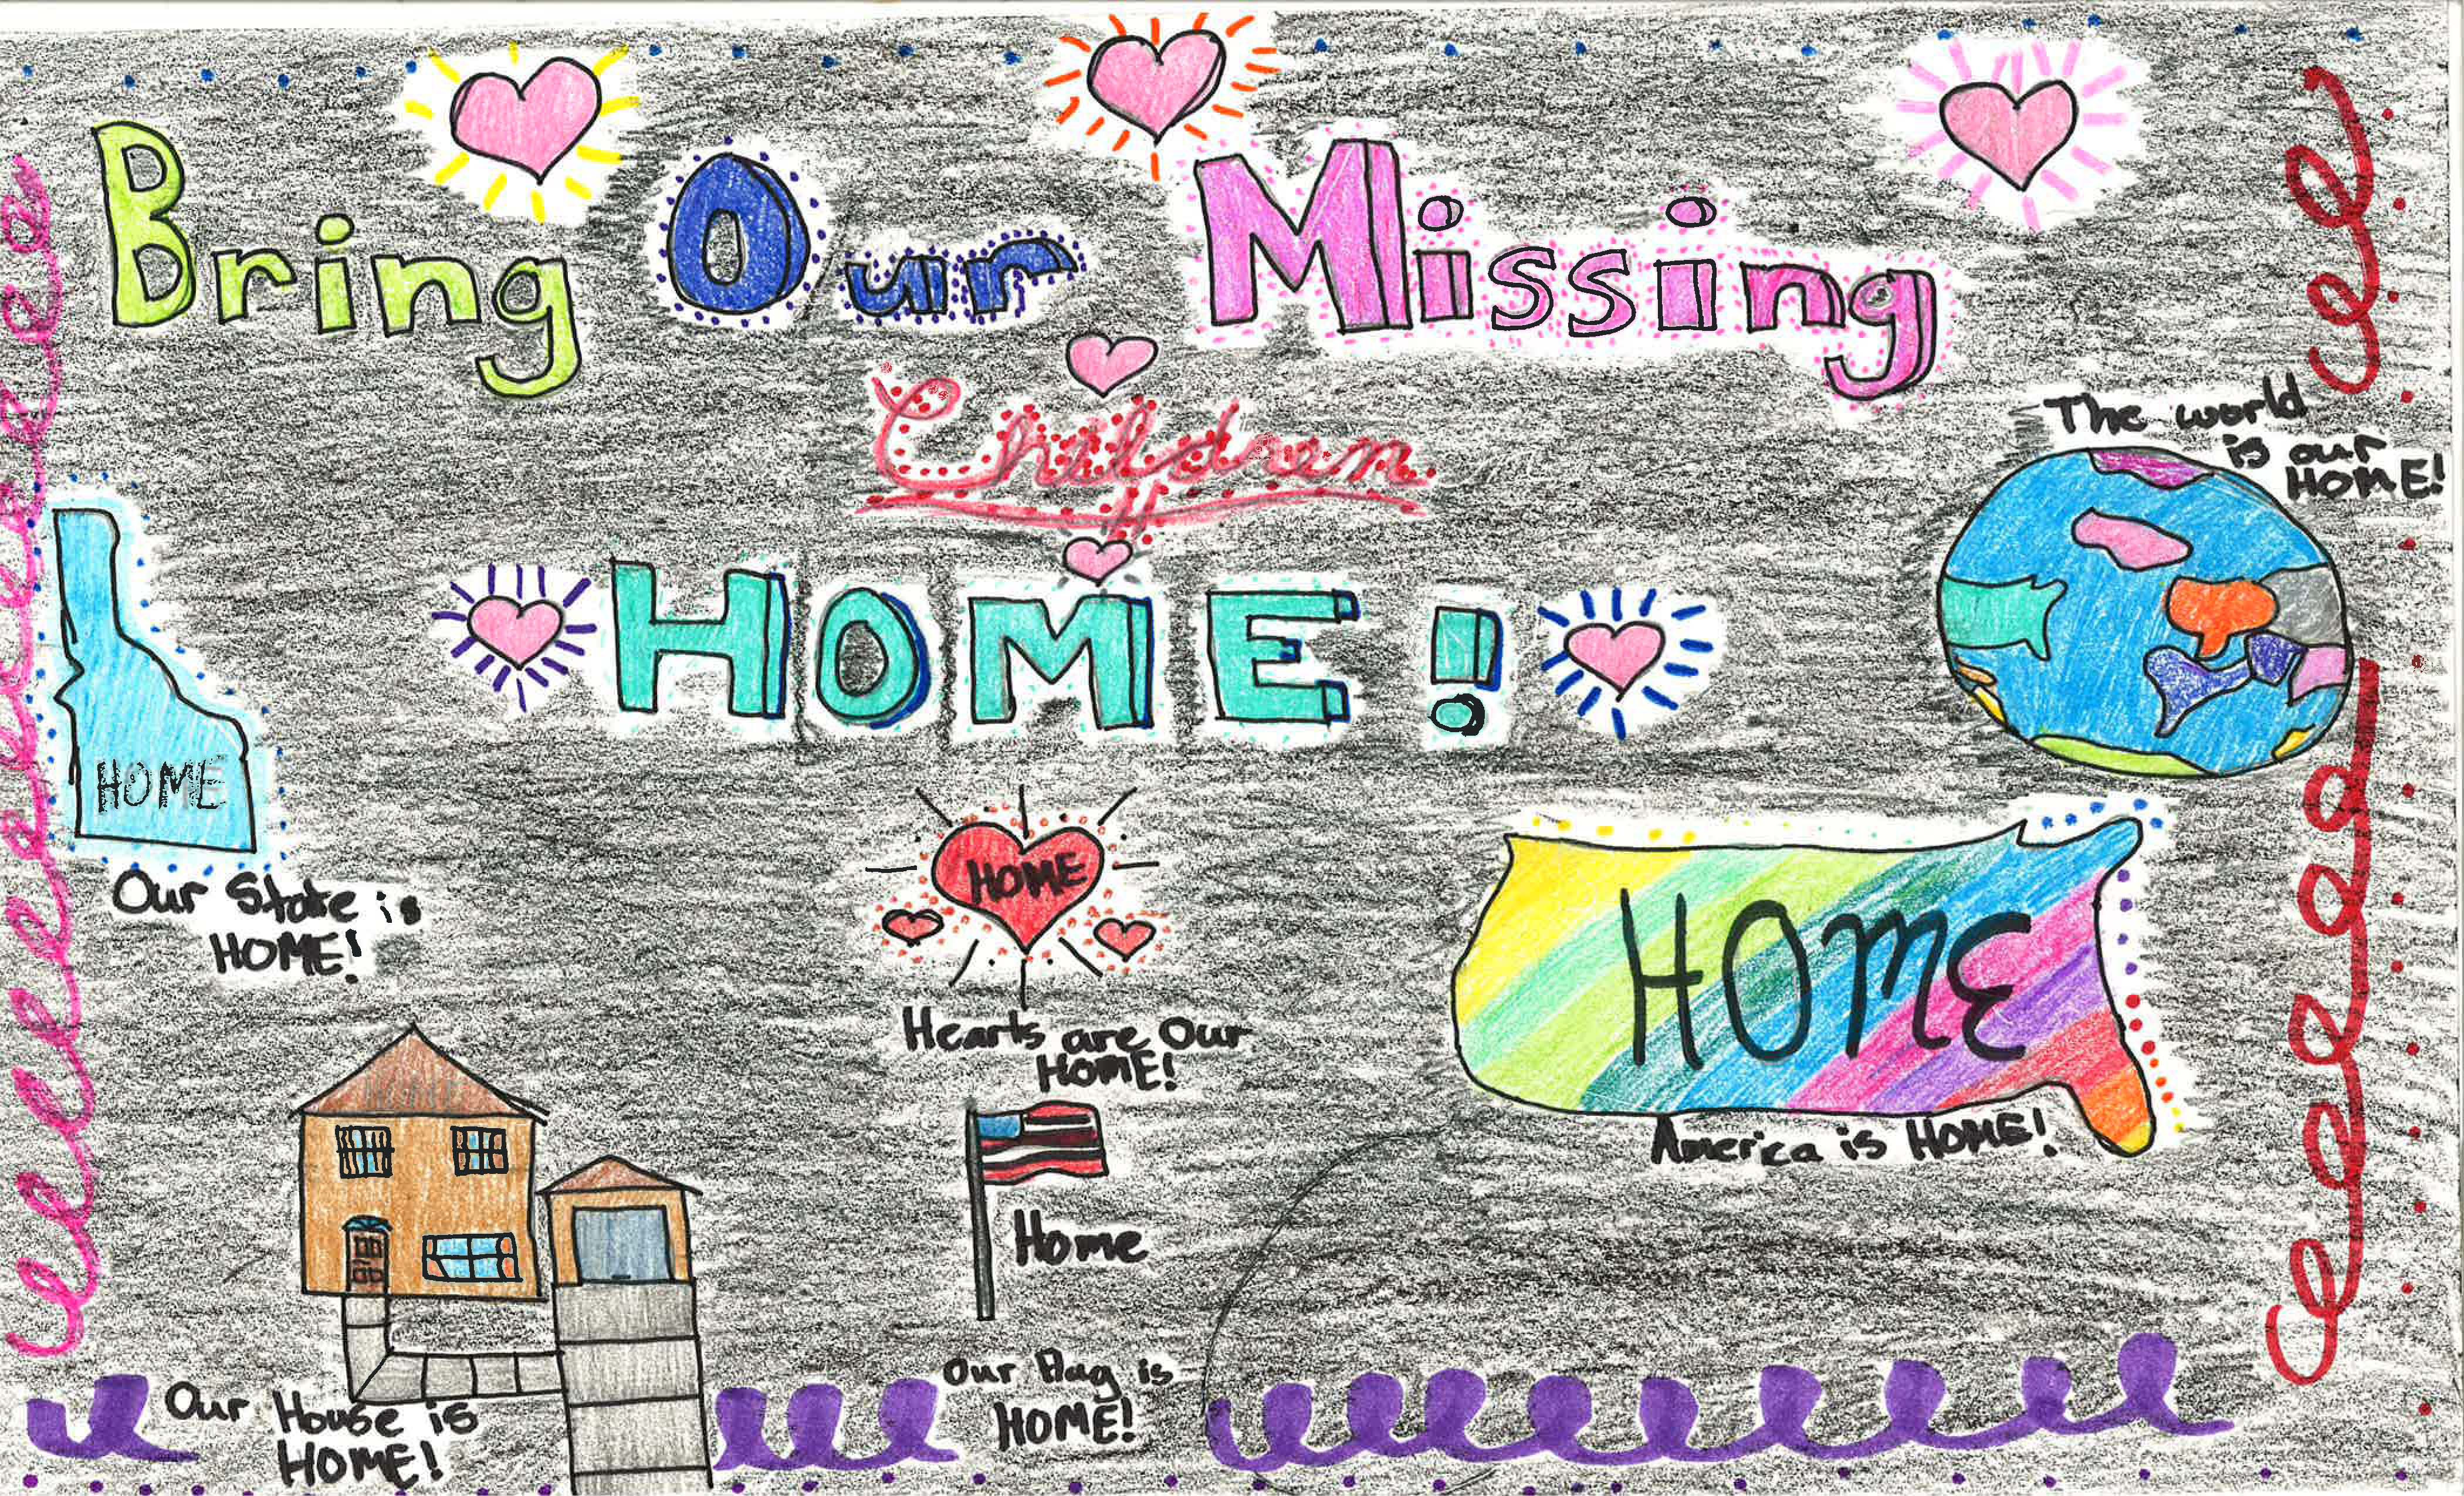 Bring Our Missing
Children
HOME!
The world
is our
HOME!
HOME
Our State is
HOME!
HOME
Hearts are Our
HOME!
HOME
America is HOME!
Home
Our House is
HOME!
Our Flag is
HOME!